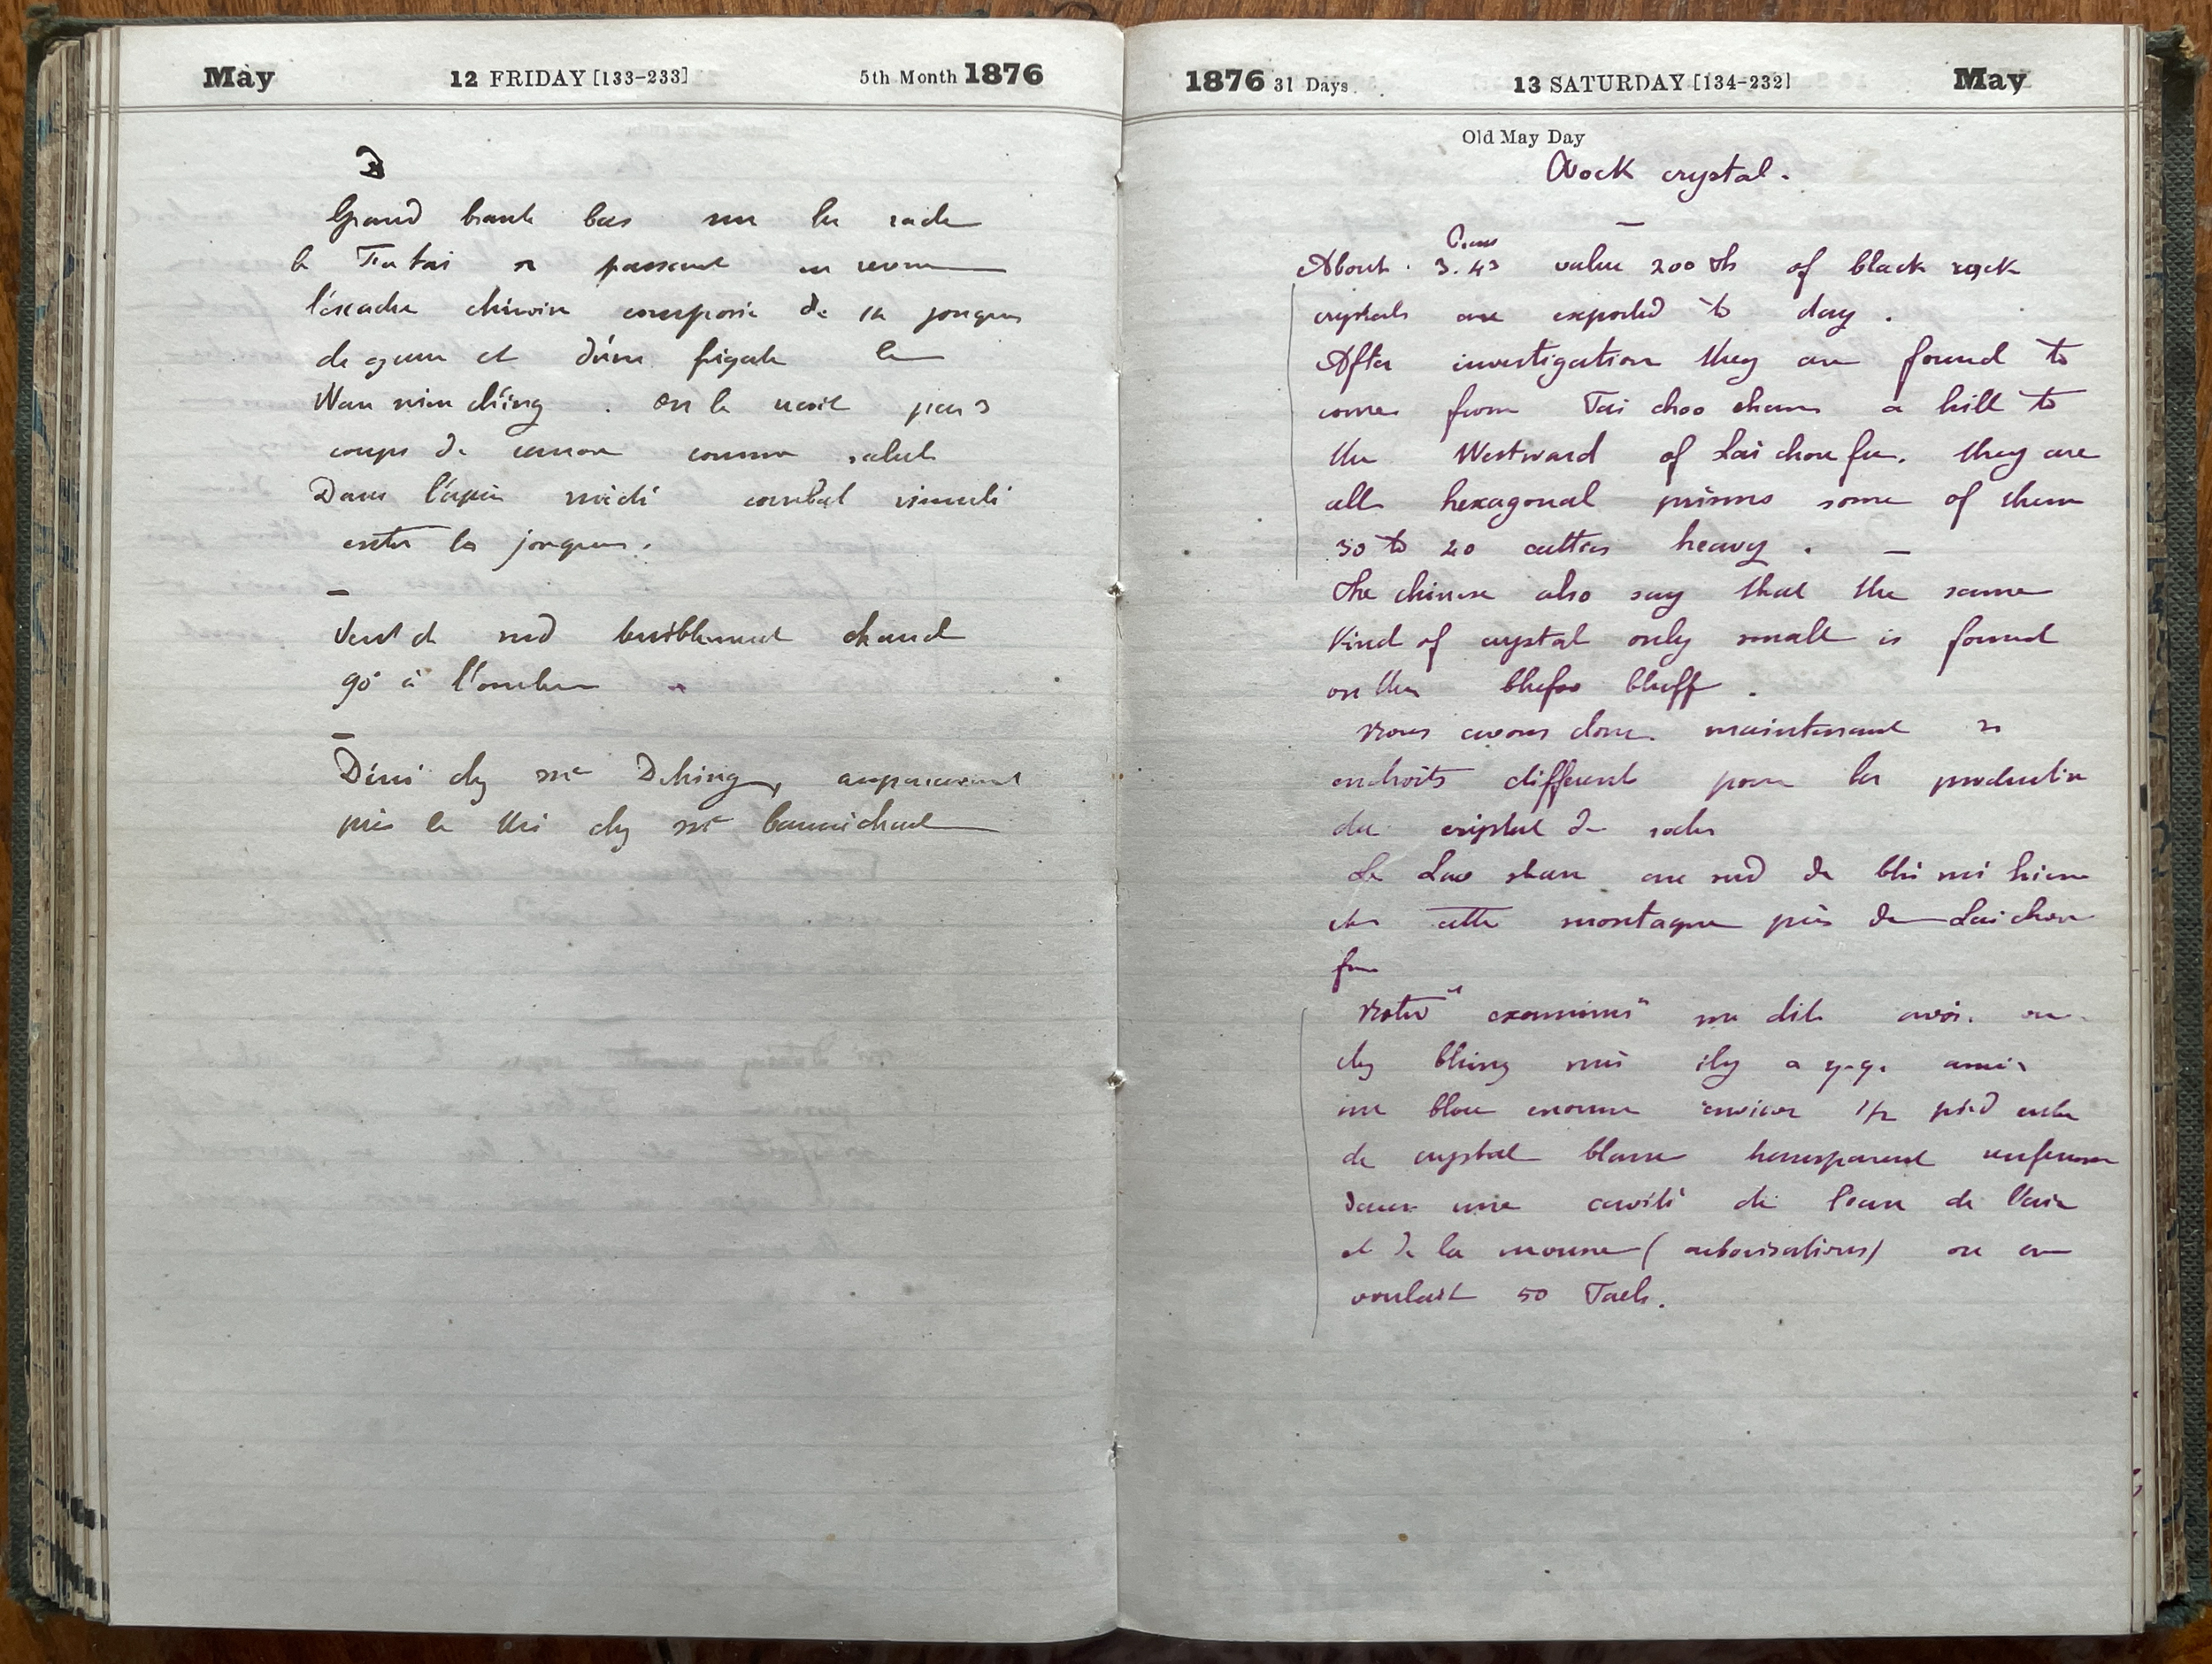 May 12 FRIDAY [133-233] 5th Month 1876
Grand branle bas sur la rade
le Tautai se passant en revue
l'escadre chinoise composée de 12 jonques
de guerre et d'une frégate le
Wan nien ching. on le reçoit par 3
coups de canon comme salut
Dans l'après midi combat simulé
entre les jonques.
—
Vent de sud terriblement chaud
90° à l'ombre
—
Dîné chez Mr Dehing, auparavant
pris le thé chez Mr Carmichael
1876 31 Days 13 SATURDAY [134-232] May
Old May Day
Rock crystal.
—
About 3.43 value 200 Th of black rock
crystals are exported to day.
After investigation they are found to
come from Tai choo shan a hill to
the Westward of Lai chou fu. they are
all hexagonal prisms some of them
30 to 40 catties heavy. —
The chinese also say that the same
kind of crystal only small is found
on the Chefoo bluff.
Nous avons donc maintenant 2
endroits différents pour la production
du cristal de roche
Le Lao shan au sud de Chi mi hien
et cette montagne près de Lai chou
fu
Notre "examiner" me dit avoir vu
chez Ching mei il y a q.q. années
un bloc énorme environ 1/2 pied cube
de crystal blanc transparent renfermant
dans une cavité de l'eau de l'air
et de la mousse (arborisations) on en
voulait 50 Taels.